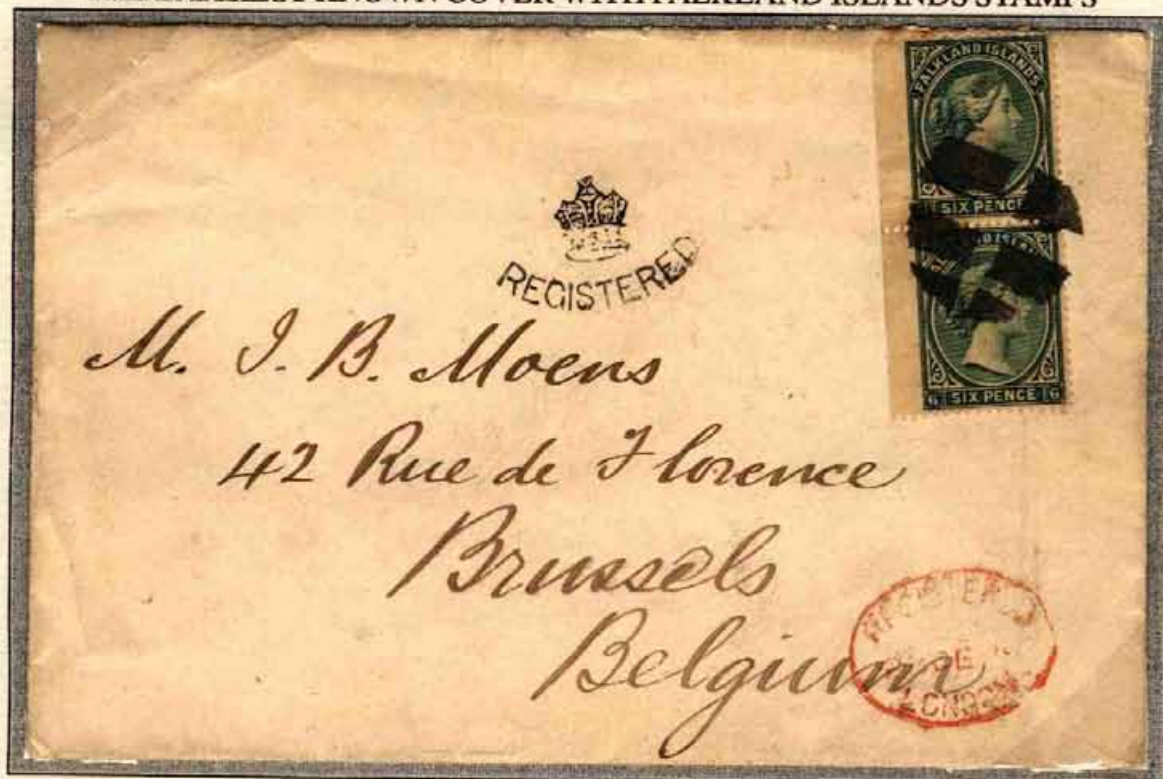 KNOWN COVER WITH FALKLAND ISLANDS STAMPS
FALKLAND ISLANDS
SIX PENCE
6 SIX PENCE 6
REGISTERED
M. J. B. Moens
42 Rue de Florence
Brussels
Belgium
REGISTERED
LONDON